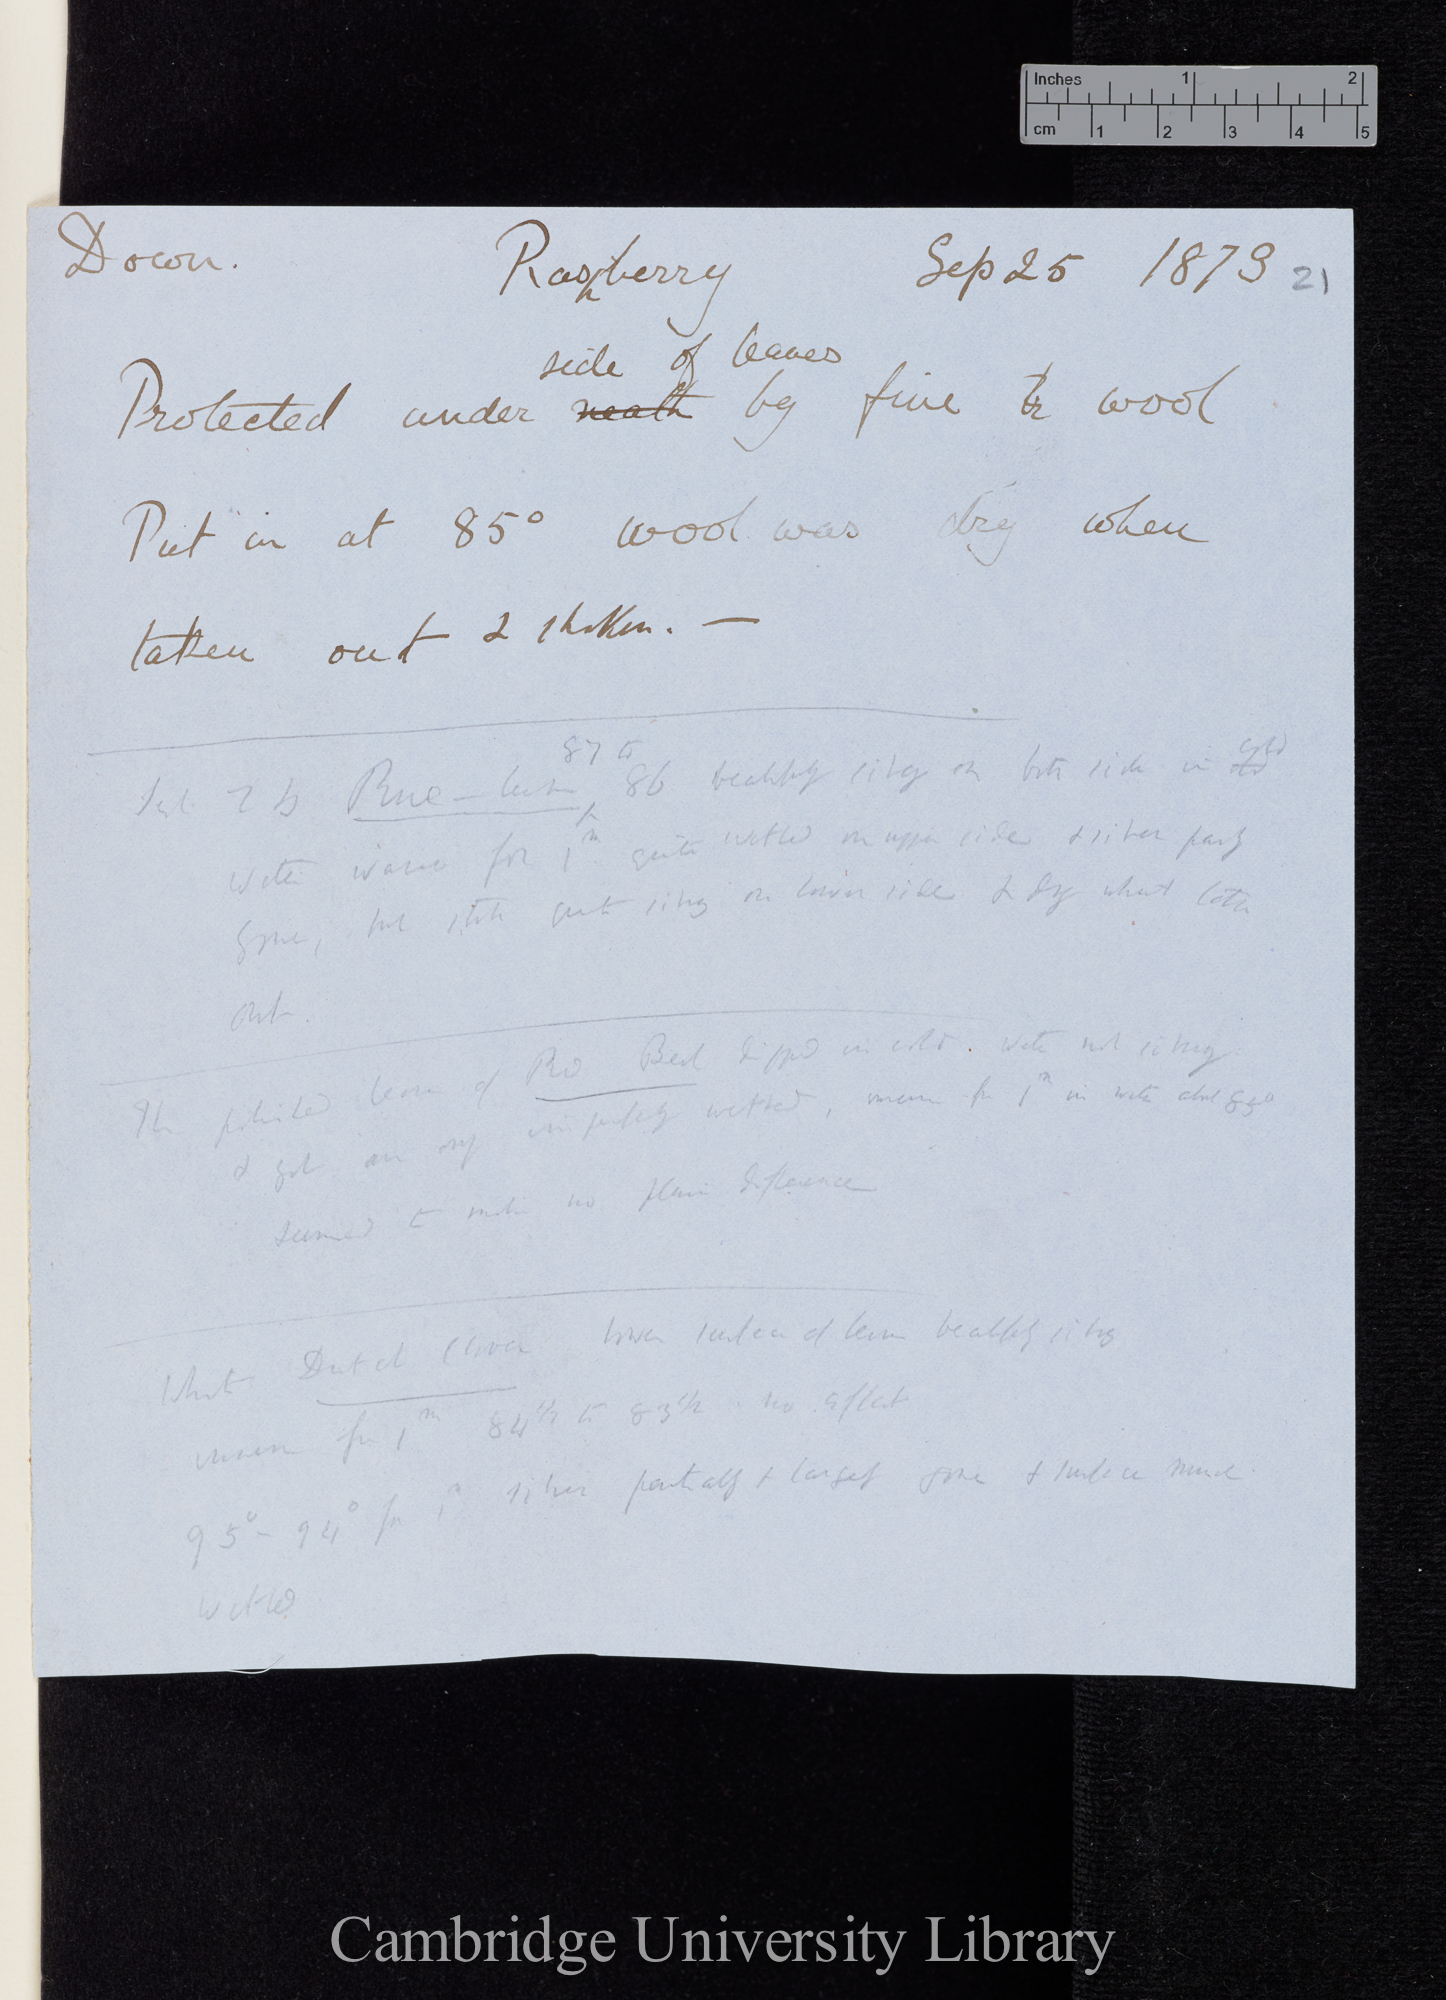 Inches 1 2
cm 1 2 3 4 5
Down. Rasberry Sep 25 1873 21
side of leaves
Protected under neath by fine wool
Put in at 85° wool was dry when
taken out & shaken. —
87 to
86 beautifully silvery on both side in cold
water warm for 1m quite wetted on upper side & silver partly
gone, but still quite silvery on lower side & dry when taken
out.
The leaves of dipped in cold water not silvery
& got only imperfectly wetted, immersion for 1m in water about 85°
seemed to make no plain difference
White Dutch Clover lower surface of leaves beautifully silvery
immersion for 1m 84 1/2 to 83 1/2 no effect
95° – 94° for 1m silver partially & largely gone & surface much
wetted
Cambridge University Library